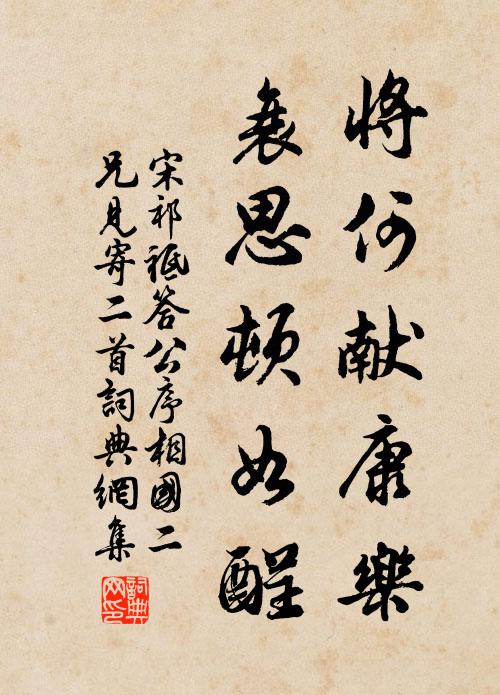 將何献康樂
衰思頓如醒
宋祁祗答公序相國二
兄見寄二首詞典網集
詞典
网印